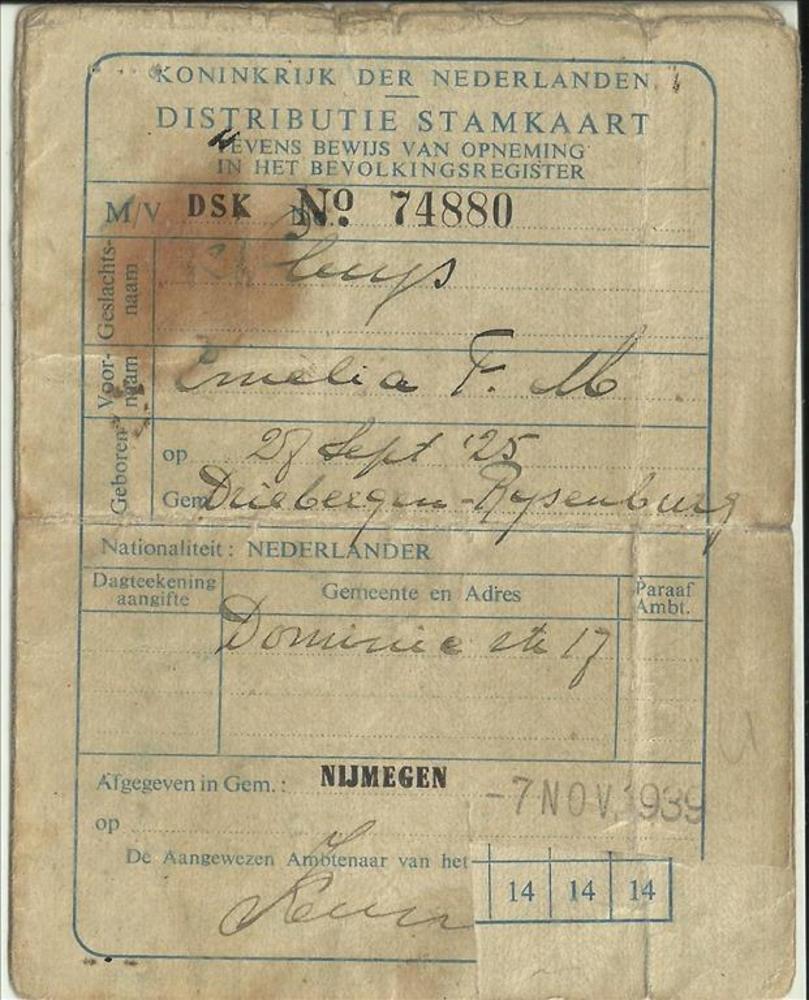 KONINKRIJK DER NEDERLANDEN
DISTRIBUTIE STAMKAART
TEVENS BEWIJS VAN OPNEMING
IN HET BEVOLKINGSREGISTER
M/V DSK No 74880
Geslachts-
naam
Voor-
naam
Emelia F. M
Geboren
op Sept '25
Gem Driebergen-Rysenburg
Nationaliteit: NEDERLANDER
Dagteekening
aangifte
Gemeente en Adres
Paraaf
Ambt.
Dominic str 17
Afgegeven in Gem.: NIJMEGEN
-7 NOV. 1939
op
De Aangewezen Ambtenaar van het
14 14 14